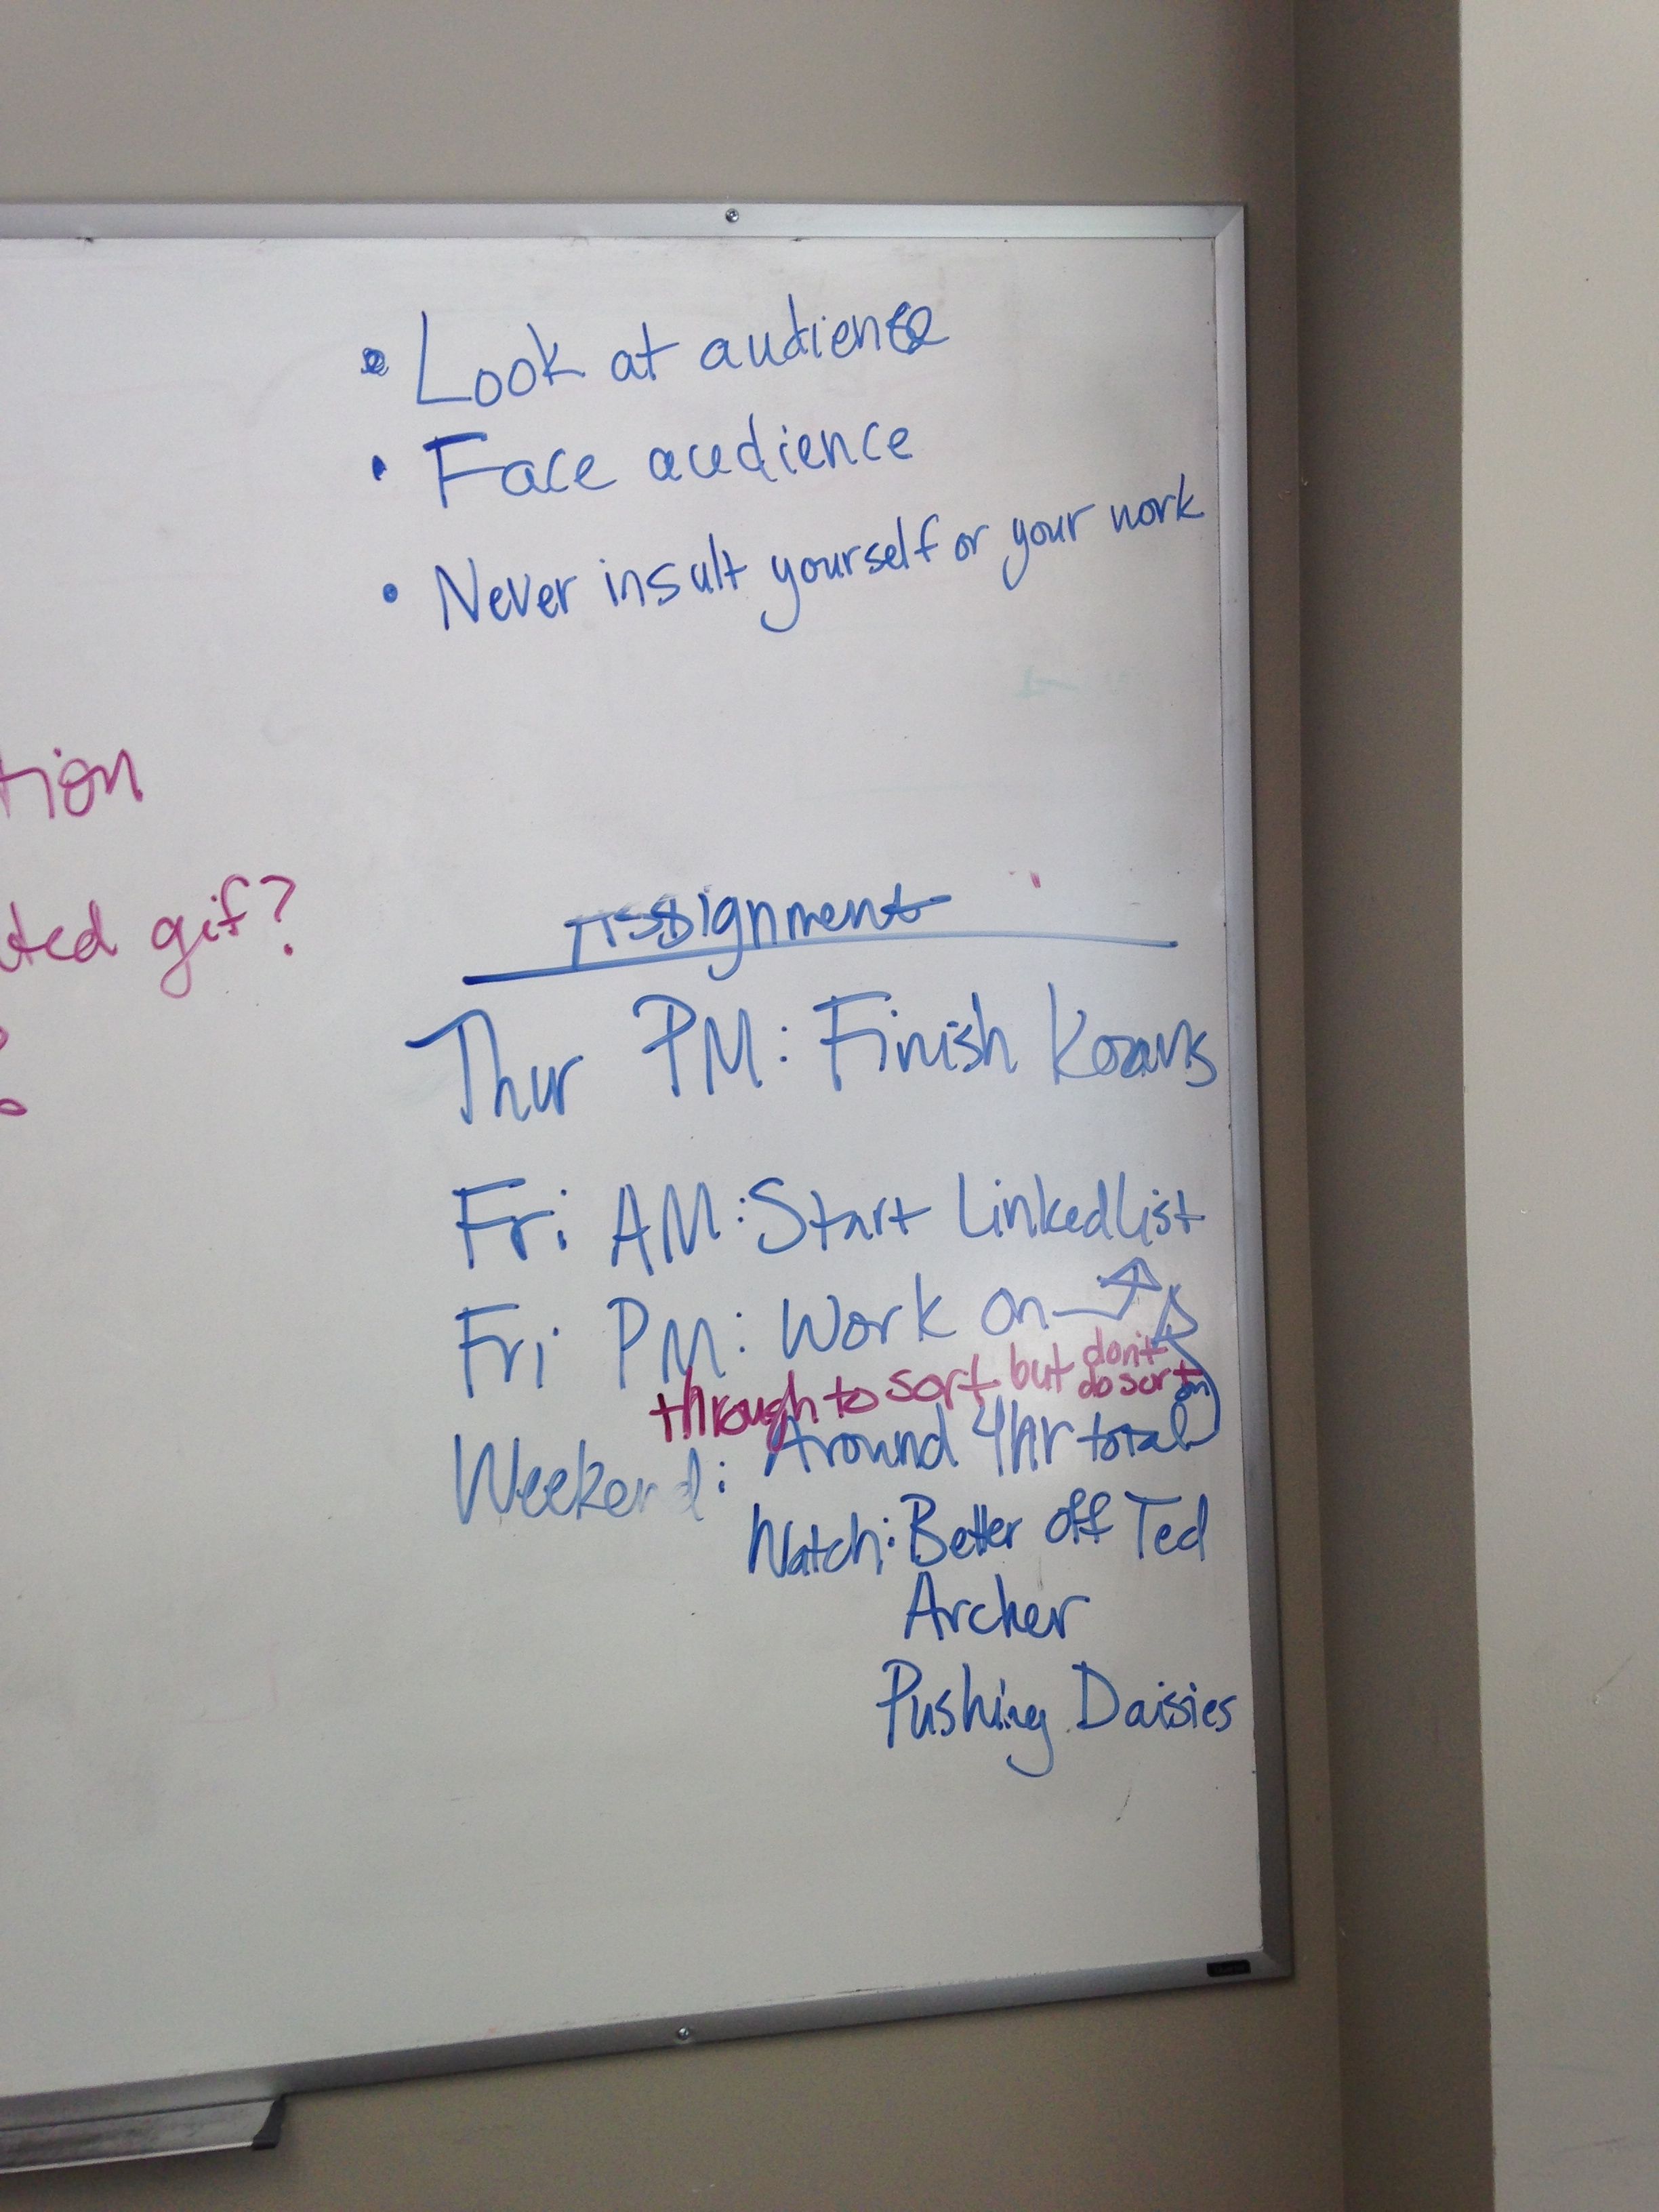 • Look at audience
• Face audience
• Never insult yourself or your work
tion
ted gif?
Assignment
Thur PM: Finish Koans
Fri AM: Start LinkedList
Fri PM: Work on
through to sort but don't do sort
Weekend: Around 4hr total on
Watch: Better off Ted
Archer
Pushing Daisies